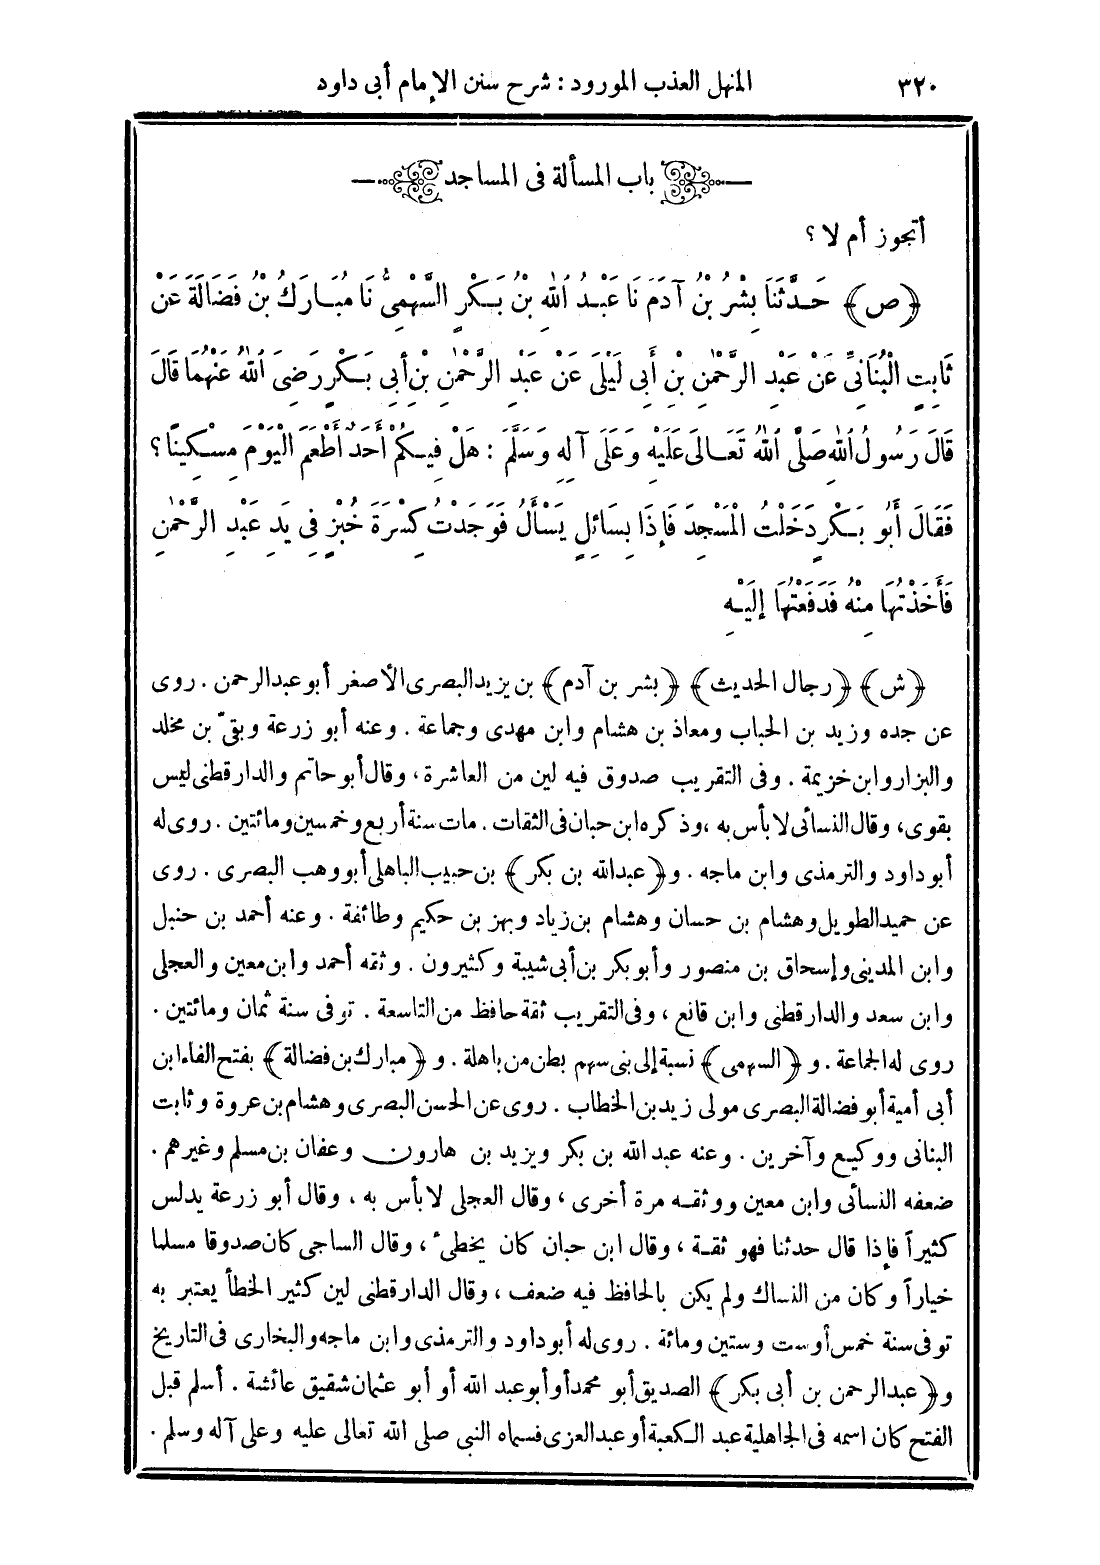 ٣٢٠ المنهل العذب المورود : شرح سنن الإمام أبى داود
باب المسألة فى المساجد
أتجوز أم لا ؟
﴿ص﴾ حَدَّثَنَا بِشْرُ بْنُ آدَمَ نَا عَبْدُ اللهِ بْنُ بَكْرٍ السَّهْمِىُّ نَا مُبَارَكُ بْنُ فَضَالَةَ عَنْ
ثَابِتٍ الْبُنَانِىِّ عَنْ عَبْدِ الرَّحْمٰنِ بْنِ أَبِى لَيْلَى عَنْ عَبْدِ الرَّحْمٰنِ بْنِ أَبِى بَكْرٍ رَضِىَ اللهُ عَنْهُمَا قَالَ
قَالَ رَسُولُ اللهِ صَلَّى اللهُ تَعَالَى عَلَيْهِ وَعَلَى آلِهِ وَسَلَّمَ : هَلْ فِيكُمْ أَحَدٌ أَطْعَمَ الْيَوْمَ مِسْكِينًا ؟
فَقَالَ أَبُو بَكْرٍ دَخَلْتُ الْمَسْجِدَ فَإِذَا بِسَائِلٍ يَسْأَلُ فَوَجَدْتُ كِسْرَةَ خُبْزٍ فِى يَدِ عَبْدِ الرَّحْمٰنِ
فَأَخَذْتُهَا مِنْهُ فَدَفَعْتُهَا إِلَيْهِ
﴿ش﴾ ﴿رجال الحديث﴾ ﴿بشر بن آدم﴾ بن يزيد البصرى الأصغر أبو عبد الرحمن . روى
عن جده وزيد بن الحباب ومعاذ بن هشام وابن مهدى وجماعة . وعنه أبو زرعة وبقىّ بن مخلد
والبزار وابن خزيمة . وفى التقريب صدوق فيه لين من العاشرة ، وقال أبو حاتم والدارقطنى ليس
بقوى ، وقال النسائى لا بأس به ، وذكره ابن حبان فى الثقات . مات سنة أربع وخمسين ومائتين . روى له
أبو داود والترمذى وابن ماجه . و﴿عبد الله بن بكر﴾ بن حبيب الباهلى أبو وهب البصرى . روى
عن حميد الطويل وهشام بن حسان وهشام بن زياد وبهز بن حكيم وطائفة . وعنه أحمد بن حنبل
وابن المدينى وإسحاق بن منصور وأبو بكر بن أبى شيبة وكثيرون . وثقه أحمد وابن معين والعجلى
وابن سعد والدارقطنى وابن قانع ، وفى التقريب ثقة حافظ من التاسعة . توفى سنة ثمان ومائتين .
روى له الجماعة . و ﴿السهمى﴾ نسبة إلى بنى سهم بطن من باهلة . و ﴿مبارك بن فضالة﴾ بفتح الفاء ابن
أبى أمية أبو فضالة البصرى مولى زيد بن الخطاب . روى عن الحسن البصرى وهشام بن عروة وثابت
البنانى ووكيع وآخرين . وعنه عبد الله بن بكر ويزيد بن هارون وعفان بن مسلم وغيرهم .
ضعفه النسائى وابن معين ووثقه مرة أخرى ، وقال العجلى لا بأس به ، وقال أبو زرعة يدلس
كثيراً فإذا قال حدثنا فهو ثقة ، وقال ابن حبان كان يخطىء ، وقال الساجى كان صدوقا مسلما
خياراً وكان من النساك ولم يكن بالحافظ فيه ضعف ، وقال الدارقطنى لين كثير الخطأ يعتبر به
توفى سنة خمس أوست وستين ومائة . روى له أبو داود والترمذى وابن ماجه والبخارى فى التاريخ
و﴿عبد الرحمن بن أبى بكر﴾ الصديق أبو محمد أو أبو عبد الله أو أبو عثمان شقيق عائشة . أسلم قبل
الفتح كان اسمه فى الجاهلية عبد الكعبة أو عبد العزى فسماه النبى صلى الله تعالى عليه وعلى آله وسلم .